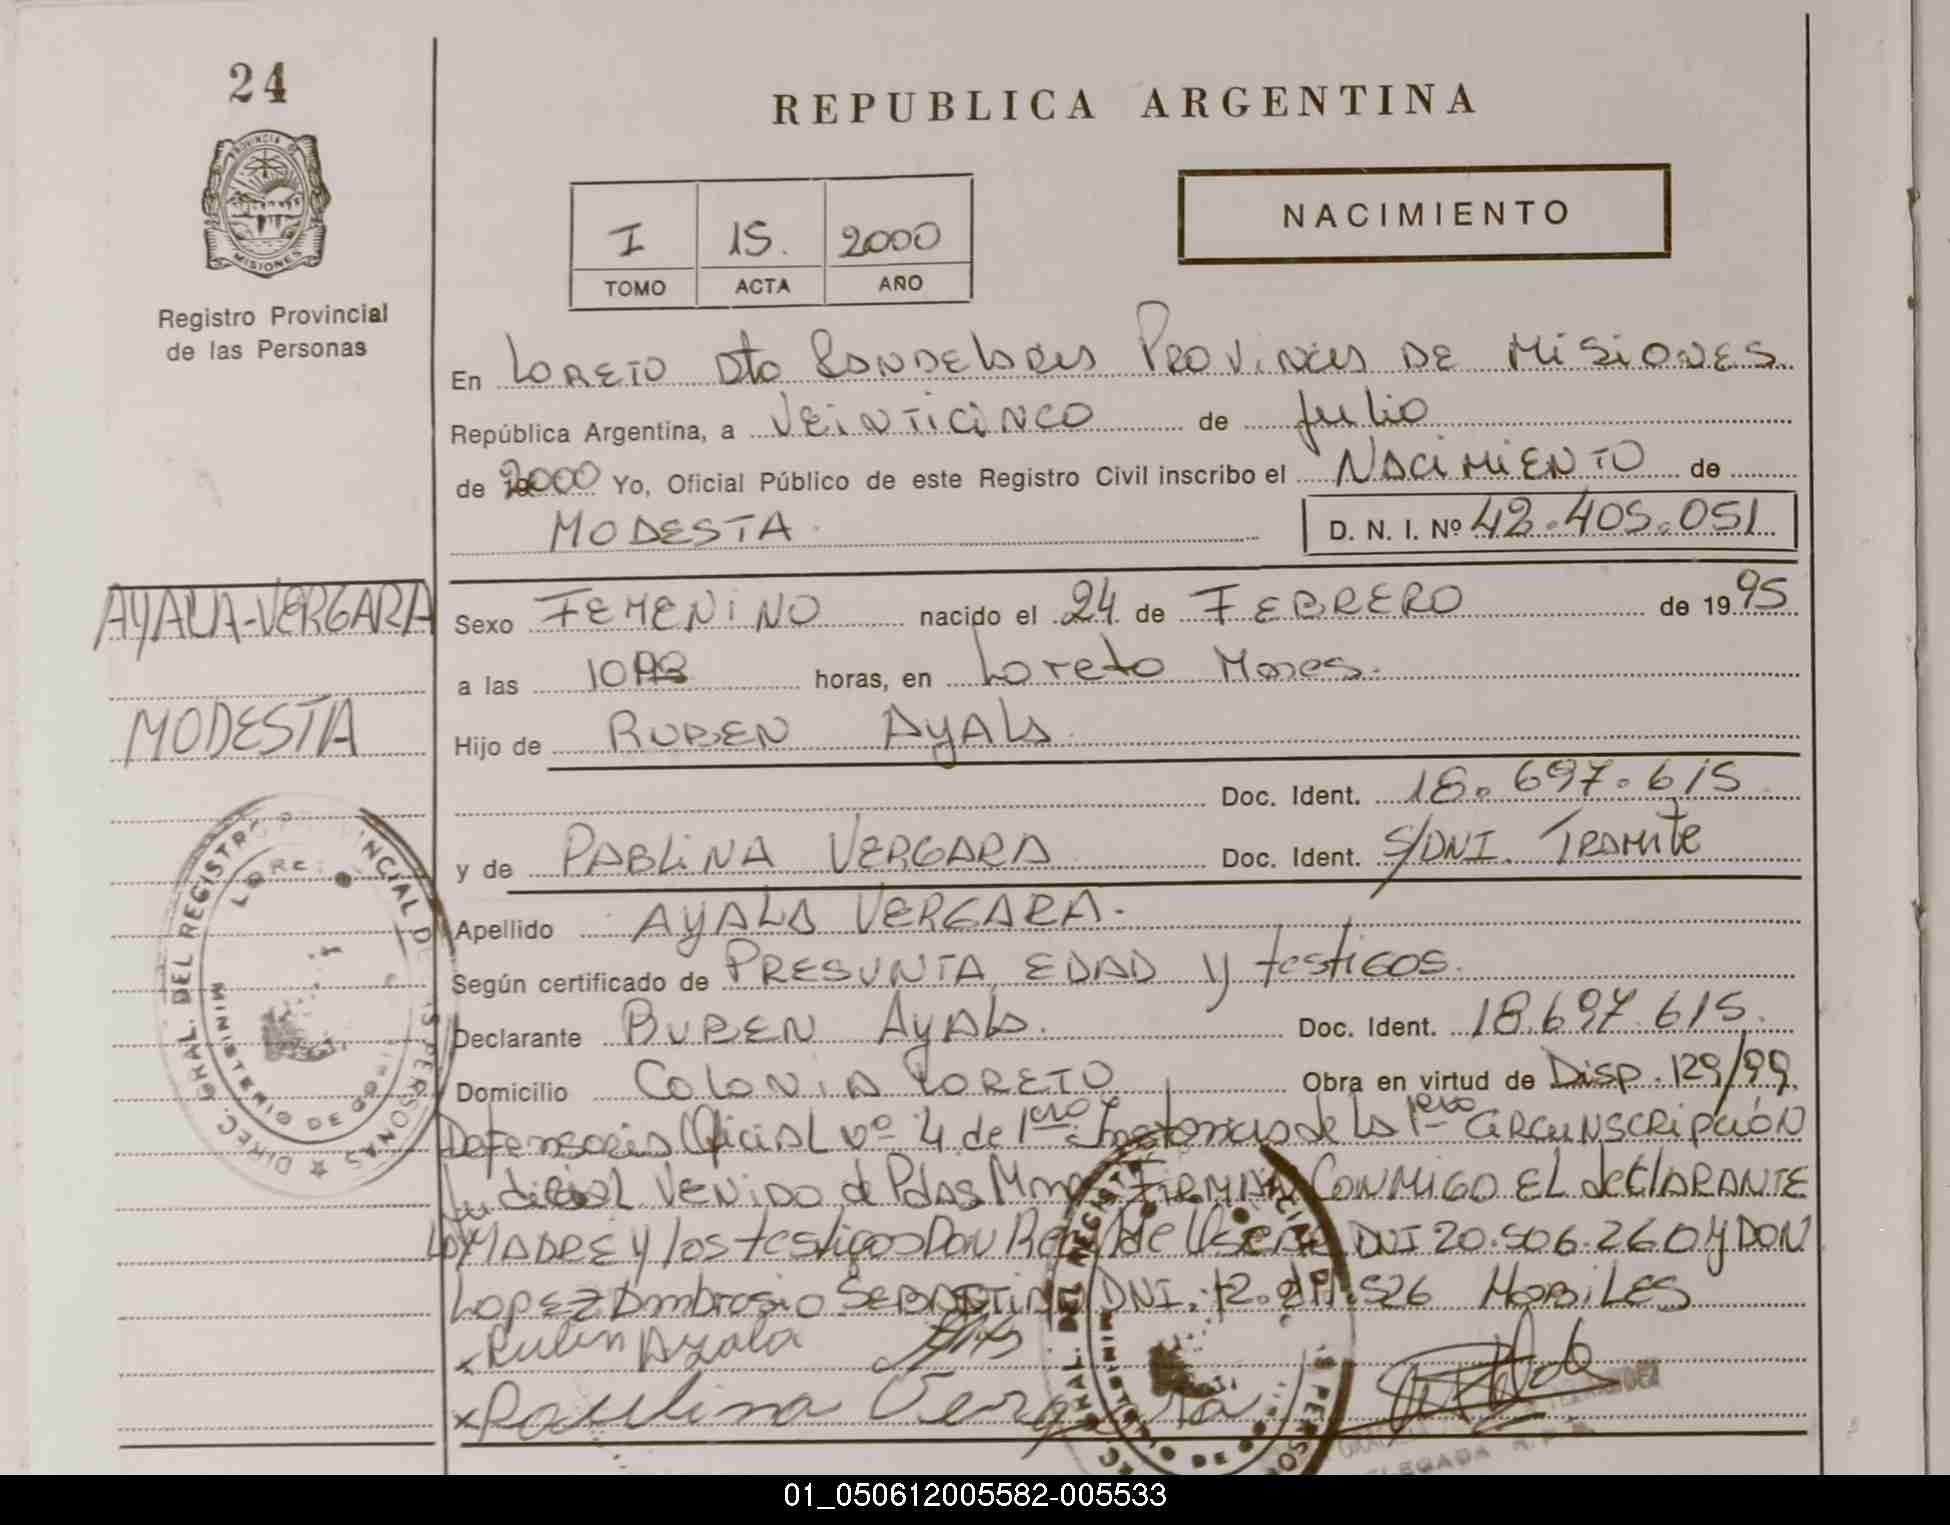 24
PROVINCIA DE
MISIONES
Registro Provincial
de las Personas
REPUBLICA ARGENTINA
NACIMIENTO
I 15. 2000
TOMO ACTA AÑO
En LORETO Dto CANDELARIA PROVINCIA DE MISIONES
República Argentina, a VEINTICINCO de Julio
de 2000 Yo, Oficial Público de este Registro Civil inscribo el NACIMIENTO de
MODESTA D. N. I. Nº 42.405.051
AYALA-VERGARA
MODESTA
Sexo FEMENINO nacido el 24 de FEBRERO de 1995
a las 10 horas, en Loreto Mnes.
Hijo de RUBEN AYALA
Doc. Ident. 18.697.615
y de PABLINA VERGARA Doc. Ident. S/DNI. TRAMITE
Apellido AYALA VERGARA.
Según certificado de PRESUNTA EDAD y testigos.
Declarante RUBEN Ayala. Doc. Ident. 18.697.615.
Domicilio COLONIA LORETO Obra en virtud de Disp. 129/99.
Defensoria Oficial nº 4 de 1era Instancia de la 1era CIRCUNSCRIPCIÓN
Judicial VENIDO de Pdas Mnes FIRMAN CONMIGO EL declARANTE
LA MADRE y los testigos Don DNI 20.506.260 y DON
LOPEZ Ambrosio SEBASTIAN DNI. 526 HABILES
Ruben Ayala
Paulina Vergara
DIREC. GRAL. DEL REGISTRO PROVINCIAL DE LAS PERSONAS
LORETO
MINISTERIO DE GOBIERNO
01_050612005582-005533